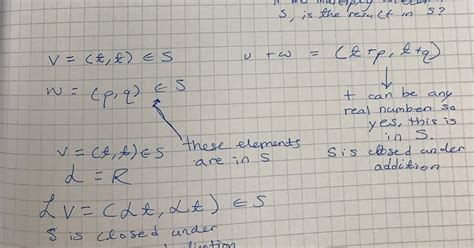 S, is the result in S?
V = (t, t) ∈ S
u + w = (t+p, t+q)
w = (p, q) ∈ S
t can be any
real number so
yes, this is
in S.
S is closed under
addition
these elements
are in S
V = (t, t) ∈ S
L = R
LV = (Lt, Lt) ∈ S
S is closed under